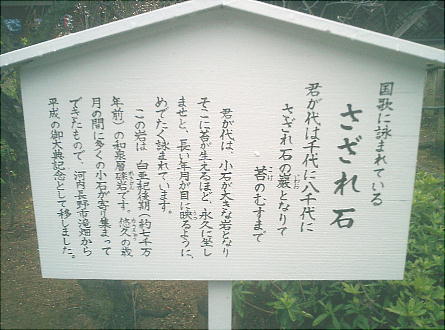 国歌に詠まれている
さざれ石
君が代は千代に八千代に
さざれ石の巌となりて
いわお
苔のむすまで
こけ
君が代は、小石が大きな岩となり
そこに苔が生えるほど、永久に坐し
ませと、長い年月が目に映るように、
めでたく詠まれています。
この岩は 白亜紀後期(約七千万
年前)の和泉層礫岩です。悠久の歳
れきがん
ゆうきゅう
月の間に多くの小石が寄り集まって
できたもので、河内長野市滝畑から
平成の御大典記念として移しました。